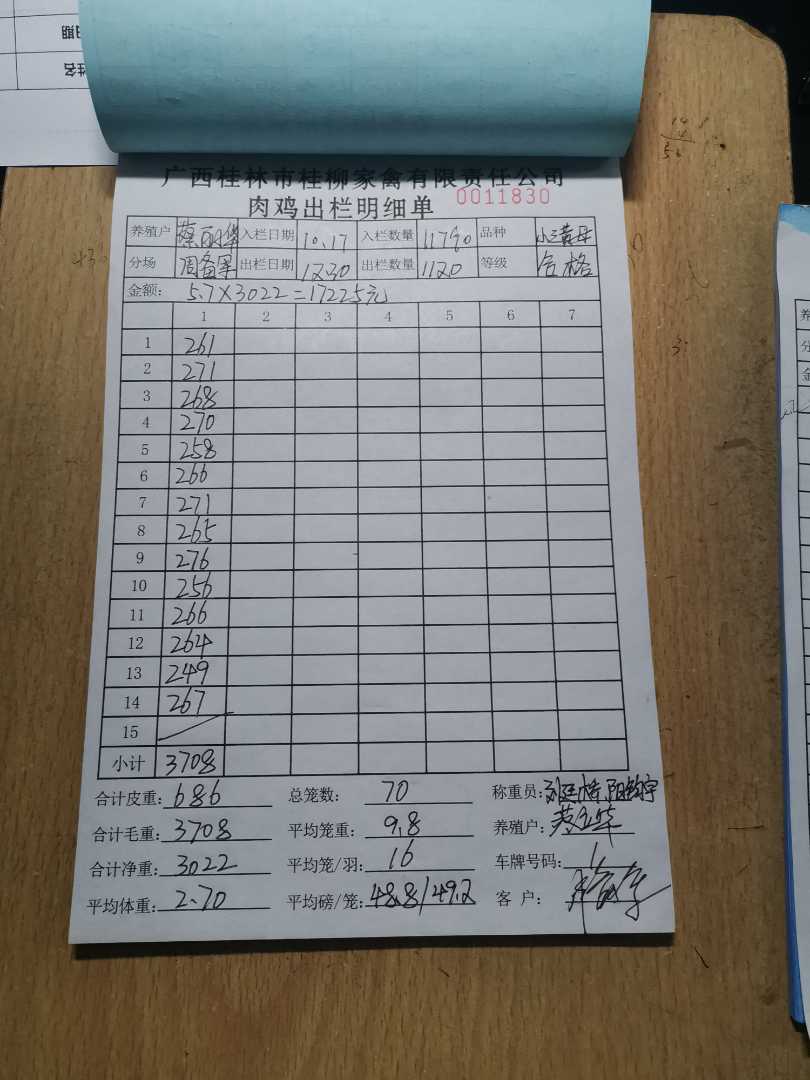 日期
姓名
广西桂林市桂柳家禽有限责任公司
肉鸡出栏明细单 0011830
养殖户 蔡丽华 入栏日期 10.17 入栏数量 11790 品种 小三黄母
分场 周备军 出栏日期 12.30 出栏数量 1120 等级 合格
金额: 5.7×3022=17225元
1 2 3 4 5 6 7
1 261
2 271
3 268
4 270
5 258
6 266
7 271
8 265
9 276
10 256
11 266
12 264
13 249
14 267
15
小计 3708
合计皮重: 686 总笼数: 70 称重员:
合计毛重: 3708 平均笼重: 9.8 养殖户:
合计净重: 3022 平均笼/羽: 16 车牌号码: 1
平均体重: 2.70 平均磅/笼: 48.8/49.2 客户: